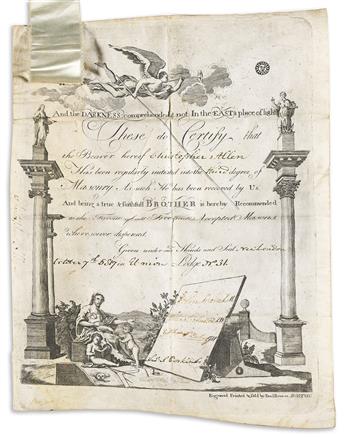 And the DARKNESS comprehended it not. In the EAST a place of light
These do Certify that
the Bearer hereof Christopher Allen
Has been regularly initiated into the third degree of
Masonry. As such He has been received by Us
And being a true & faithful BROTHER is hereby Recommended
to the Favour of all Free and Accepted Masons
wheresoever dispersed.
Given under our Hands and Seal New London
in Union Lodge No 31.
Engraved Printed & Sold by Paul Revere BOSTON